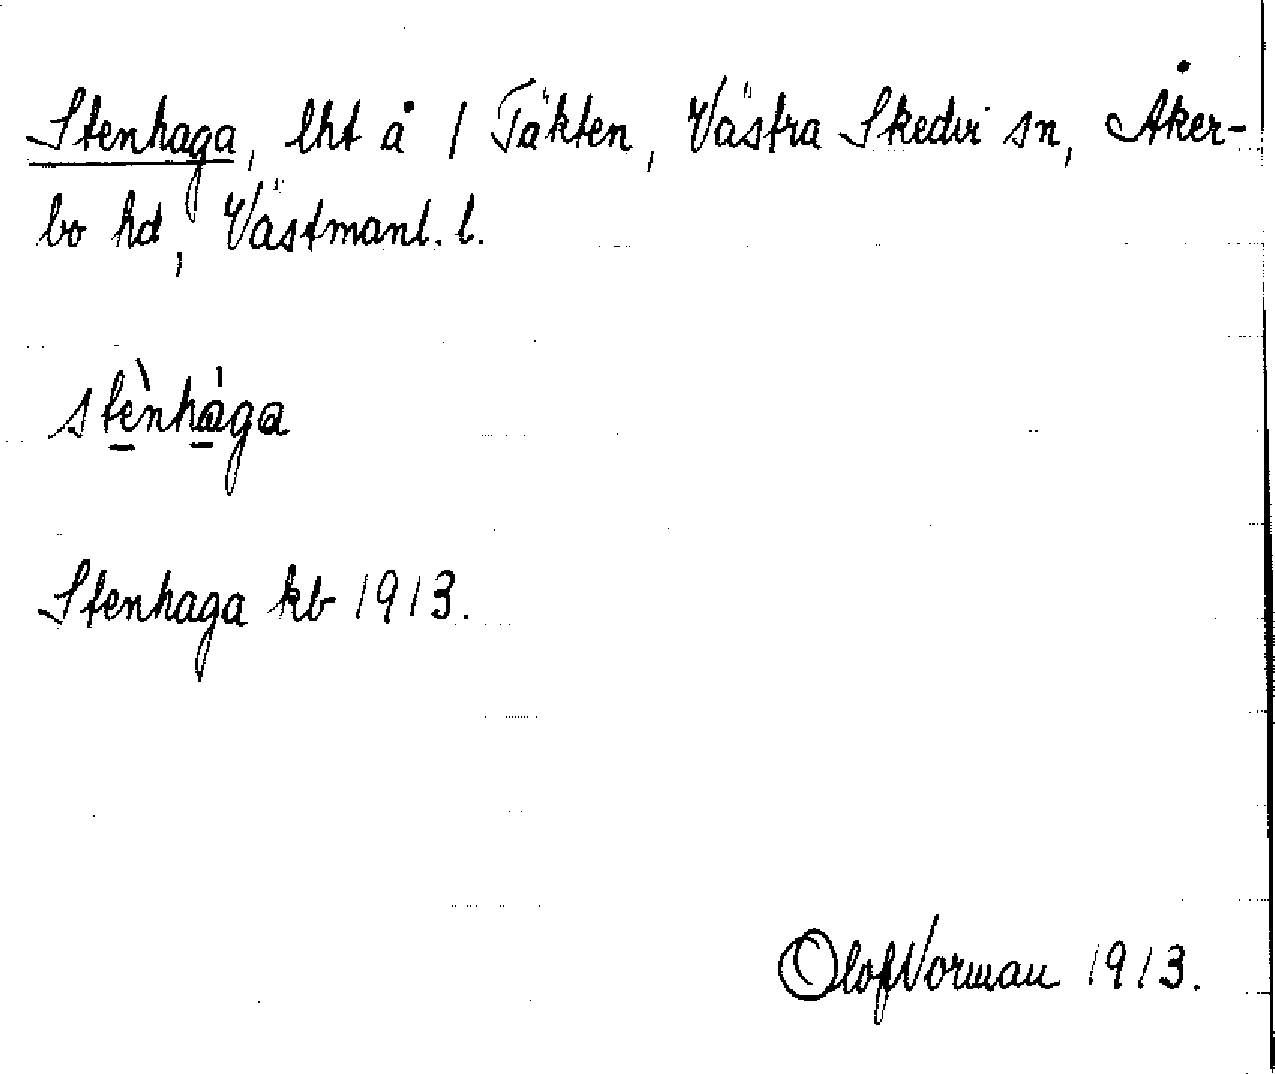 Stenhaga, lht å 1 Täkten, Västra Skedvi sn, Åker-
bo hd, Västmanl. l.
stènhága
Stenhaga kb 1913.
Olof Norman 1913.